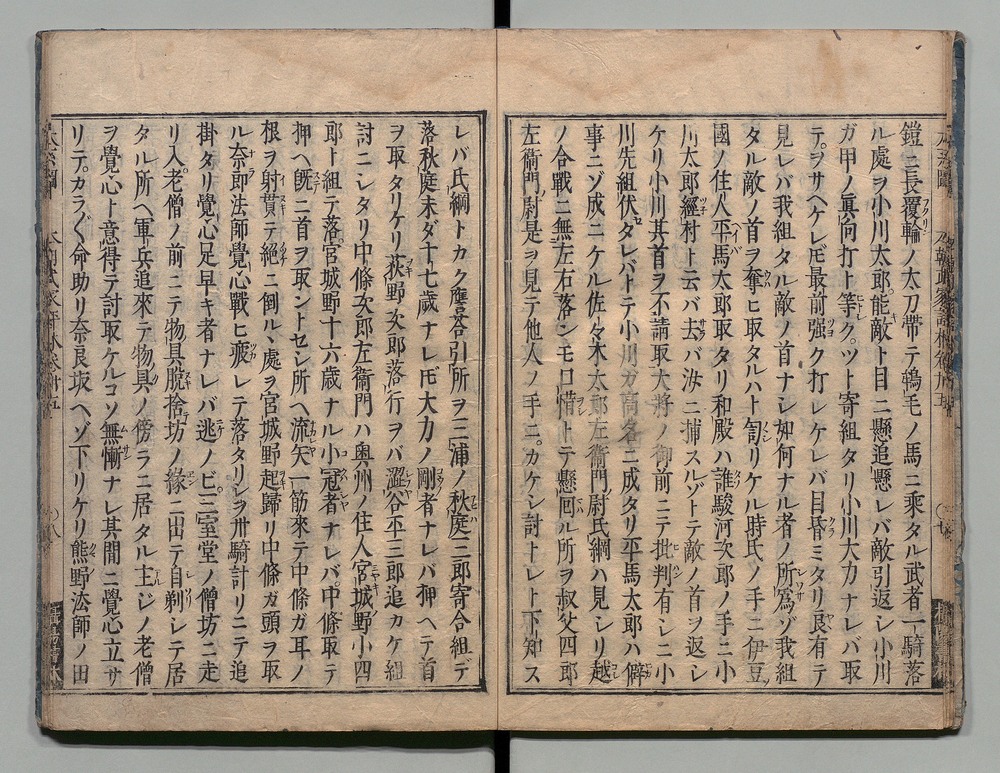 鎧ニ長覆輪ノ太刀帶テ鴾毛ノ馬ニ乘タル武者一騎落
ル處ヲ小川太郎能敵ト目ニ懸追懸レバ敵引返シ小川
ガ甲ノ眞向打ト等ク。ツト寄組タリ小川大力ナレバ取
テ。ヲサヘケレ𪜈最前强ク打レケレバ目昏ミタリ良有テ
見レバ我組タル敵ノ首ナシ如何ナル者ノ所爲ゾ我組
タル敵ノ首ヲ奪ヒ取タルハト訇リケル時氏ノ手ニ伊豆
國ノ住人平馬太郎取タリ和殿ハ誰駿河次郎ノ手ニ小
川太郎經村ト云バ去バ汝ニ捕スルゾトテ敵ノ首ヲ返シ
ケリ小川其首ヲ不請取大將ノ御前ニテ批判有シニ小
川先組伏セダレバトテ小川ガ高名ニ成タリ平馬太郎ハ僻
事ニゾ成ニケル佐々木太郎左衞門尉氏綱ハ見シリ越
ノ合戰ニ無左右落ンモ口惜トテ懸回ル所ヲ叔父四郎
左衞門尉是ヲ見テ他人ノ手ニ。カケン討トレト下知ス
レバ氏綱トカク應答引所ヲ三浦ノ秋庭三郎寄合組デ
落秋庭未ダ十七歲ナレ𪜈大力ノ剛者ナレバ押ヘテ首
ヲ取タリケリ荻野次郎落行ヲバ澀谷平三郎追カケ組
討ニシタリ中條次郎左衞門ハ奥州ノ住人宮城野小四
郎ト組テ落宮城野十六歲ナル小冠者ナレバ。中條取テ
押ヘ旣ニ首ヲ取ントセシ所ヘ流矢一筋來テ中條ガ耳ノ
根ヲ射貫テ絕ニ倒ル、處ヲ宮城野起歸リ中條ガ頭ヲ取
ル奈郎法師覺心戰ヒ疲レテ落タリシヲ卅騎計リニテ追
掛タリ覺心足早キ者ナレバ逃ノビ三室堂ノ僧坊ニ走
リ入。老僧ノ前ニテ物具脫捨テ坊ノ緣ニ出テ自剃シテ居
タル所ヘ軍兵追來テ物具ノ傍ラニ居タル主ジノ老僧
ヲ覺心ト意得テ討取ケルコソ無慚ナレ其間ニ覺心立サ
リテ。カラ〲命助リ奈良坂ヘゾ下リケリ熊野法師ノ田